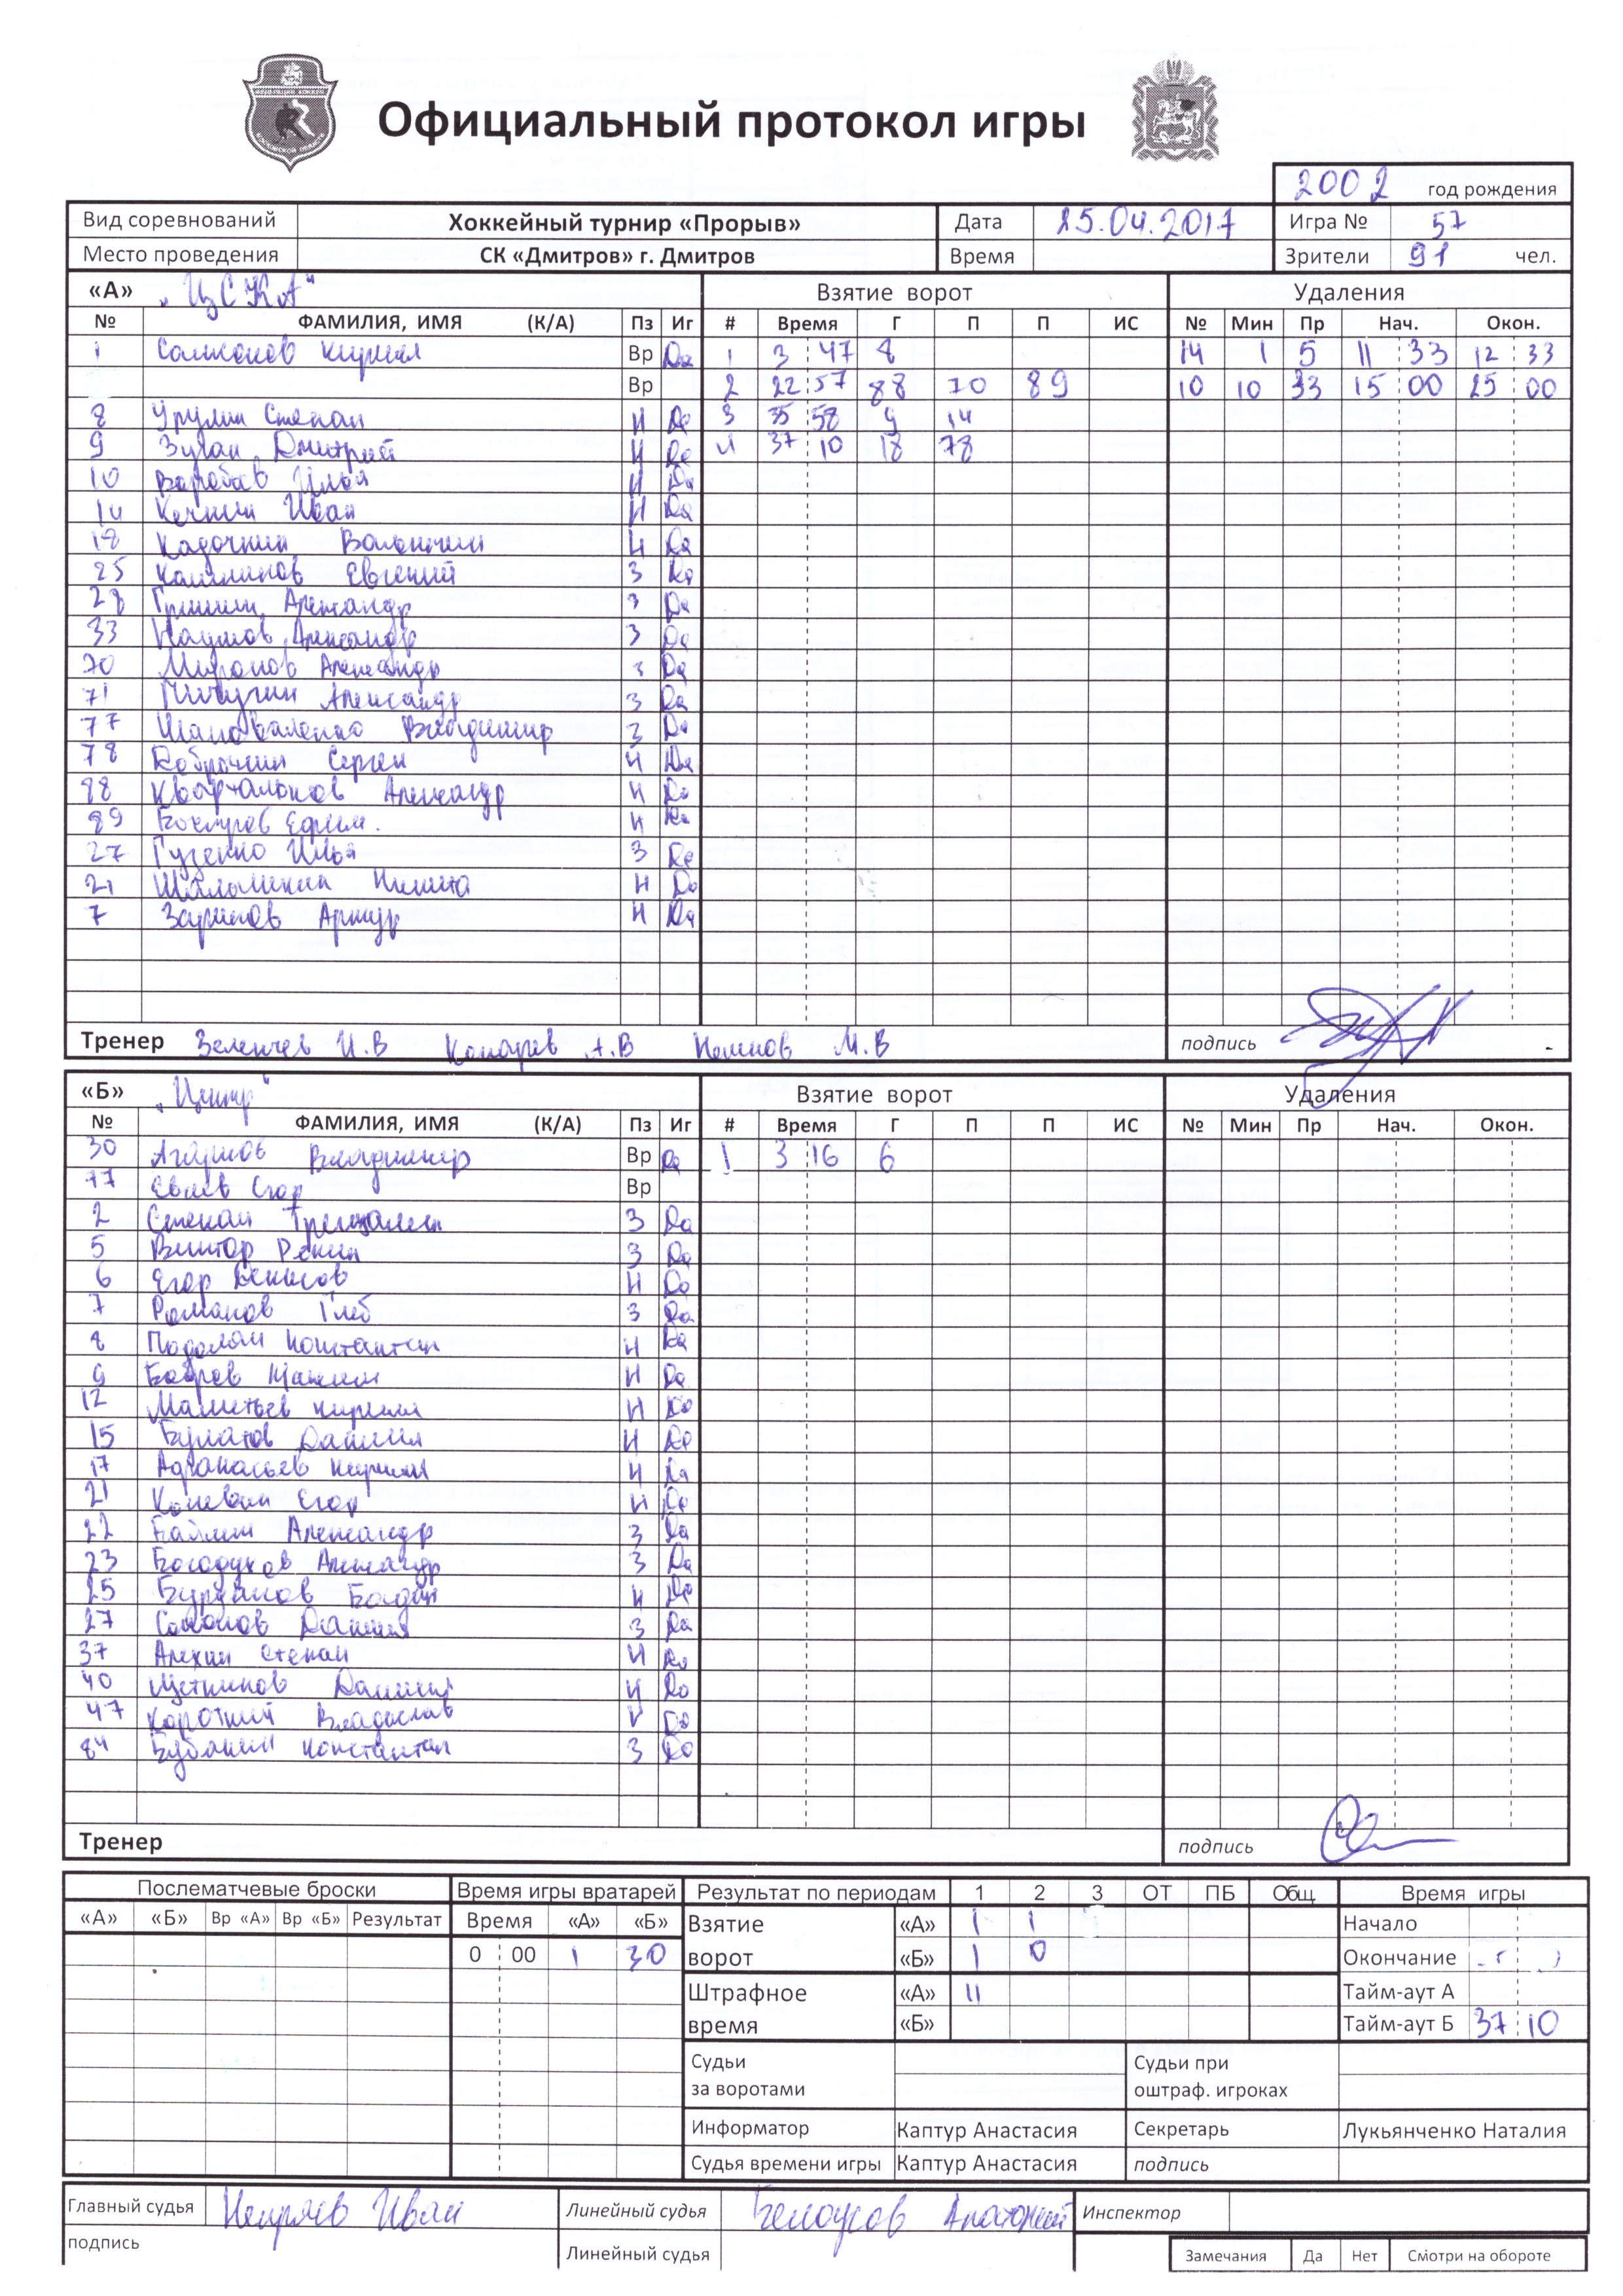 Официальный протокол игры
2002 год рождения
Вид соревнований Хоккейный турнир «Прорыв» Дата 25.04.2017 Игра № 57
Место проведения СК «Дмитров» г. Дмитров Время Зрители 91 чел.
«А» "ЦСКА" Взятие ворот Удаления
№ ФАМИЛИЯ, ИМЯ (К/А) Пз Иг # Время Г П П ИС № Мин Пр Нач. Окон.
1 Кирилл Вр Да 1 3 47 8 14 1 5 11 33 12 33
Вр 2 22 57 88 70 89 10 10 33 15 00 25 00
8 Урулин Степан Н Да 3 35 58 9 14
9 Зуган Дмитрий Н Да 4 37 10 18 78
10 Илья Н Да
14 Иван Н Да
18 Кадочкин Валентин Н Да
25 Евгений З Да
28 Гришин Александр З Да
33 Наумов Александр З Да
70 Миронов Александр З Да
71 Пичугин Александр З Да
77 Шаповаленко Владимир З Да
78 Добрачин Сергей Н Да
88 Кварталонов Александр Н Да
89 Ефим. Н Да
27 Гузенко Илья З Да
21 Никита Н Да
7 Зарипов Артур Н Да
Тренер И.В А.В М.В подпись
«Б» "Центр" Взятие ворот Удаления
№ ФАМИЛИЯ, ИМЯ (К/А) Пз Иг # Время Г П П ИС № Мин Пр Нач. Окон.
30 Владимир Вр Да 1 3 16 6
77 Егор Вр
2 Степан З Да
5 Виктор Репин З Да
6 Егор Денисов Н Да
7 Романов Глеб З Да
8 Подолян Константин Н Да
9 Бобров Максим Н Да
12 Кирилл Н Да
15 Булатов Даниил Н Да
17 Афанасьев Кирилл Н Да
21 Егор Н Да
22 Александр З Да
23 Богодухов Александр З Да
25 Богдан Н Да
27 Даниил З Да
37 Алехин Степан Н Да
40 Щетников Даниил Н Да
47 Короткий Владислав Да
84 Бубякин Константин З Да
Тренер подпись
Послематчевые броски Время игры вратарей Результат по периодам 1 2 3 ОТ ПБ Общ. Время игры
«А» «Б» Вр «А» Вр «Б» Результат Время «А» «Б» Взятие «А» 1 1 Начало
0 00 1 30 ворот «Б» 1 0 Окончание
Штрафное «А» 11 Тайм-аут А
время «Б» Тайм-аут Б 37 10
Судьи за воротами Судьи при оштраф. игроках
Информатор Каптур Анастасия Секретарь Лукьянченко Наталия
Судья времени игры Каптур Анастасия подпись
Главный судья Иван Линейный судья Белоусов Анатолий Инспектор
подпись Линейный судья Замечания Да Нет Смотри на обороте